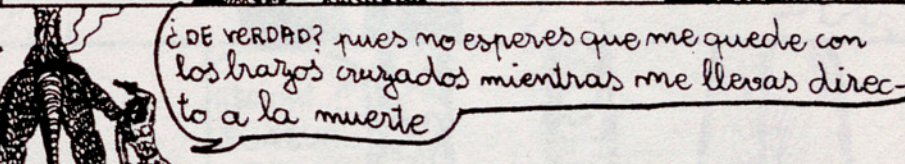 ¿DE VERDAD? pues no esperes que me quede con
los brazos cruzados mientras me llevas direc-
to a la muerte